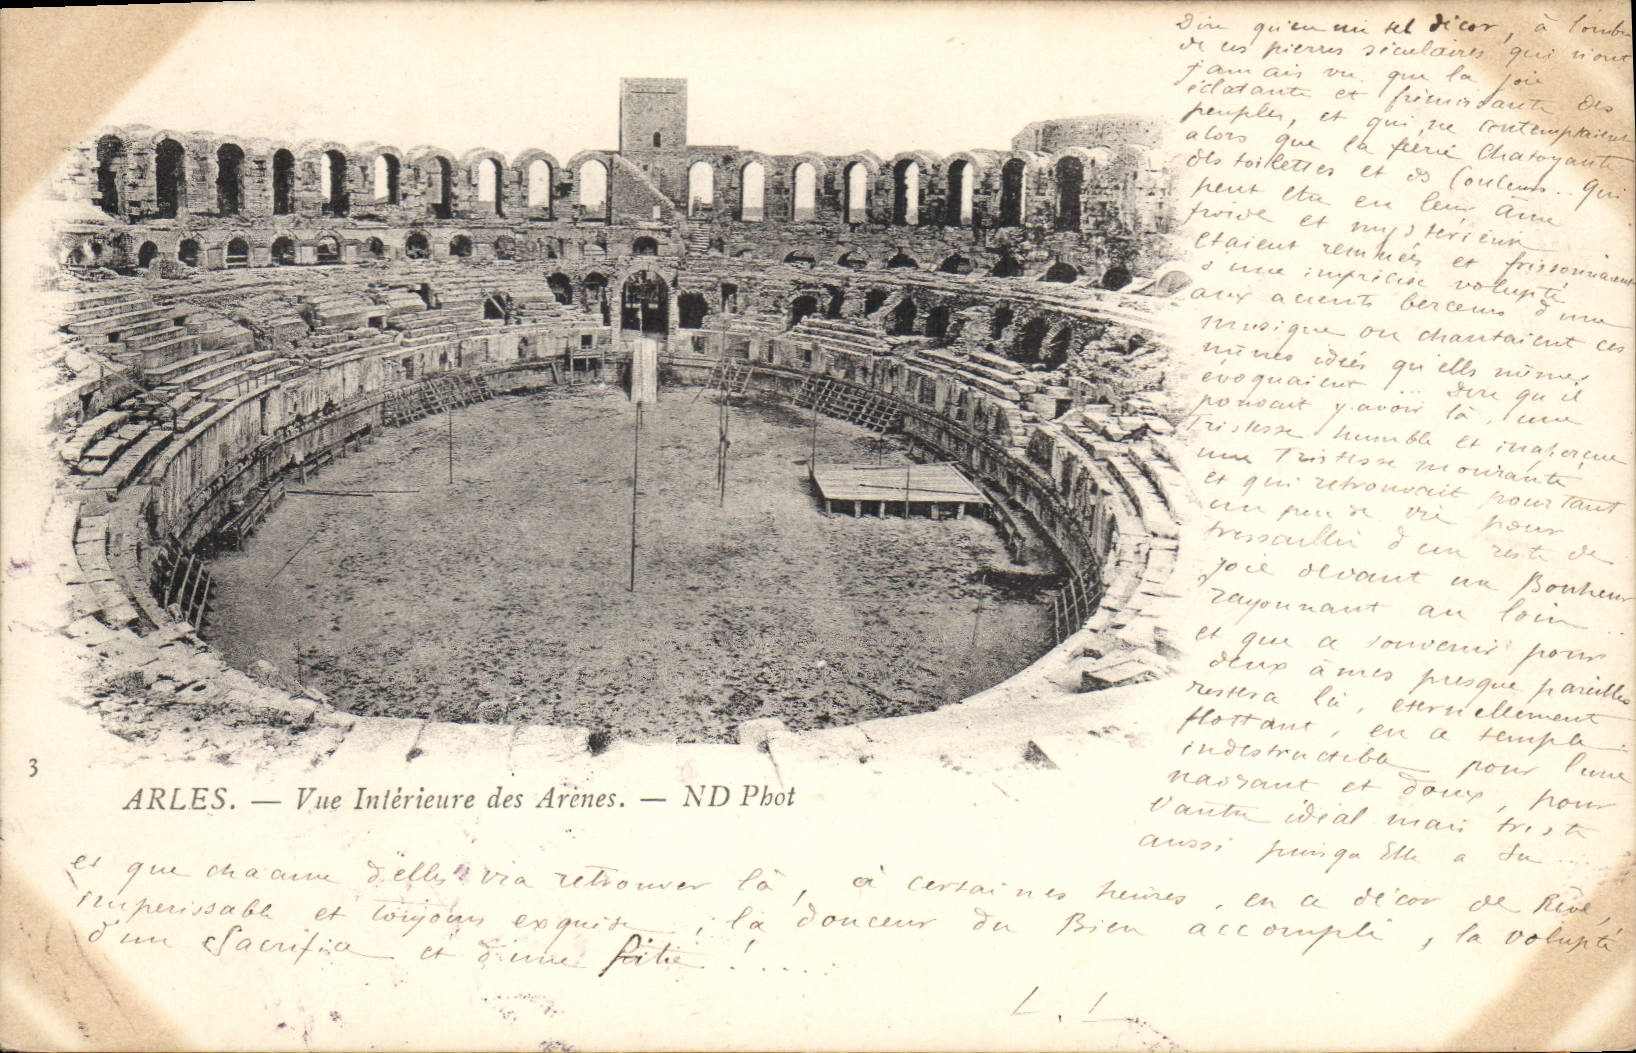 Dire qu'en un tel décor, à l'ombre
de ces pierres séculaires qui n'ont
jamais vu que la joie
éclatante et frémissante des
peuples, et qui ne contemplaient
alors que la féerie chatoyante
des toilettes et des couleurs... qui
peut être en leur âme
froide et mystérieuse
étaient remuées et frissonnaient
d'une imprécise volupté
aux accents berceurs d'une
musique où chantaient ces
mêmes idées qu'elles mêmes
évoquaient ... Dire qu'il
pouvait y avoir là, une
Tristesse humble et inaperçue
une Tristesse mourante
et qui retrouvait pourtant
un peu de vie pour
tressaillir d'un reste de
joie devant un Bonheur
rayonnant au loin ...
et que ce souvenir pour
deux âmes presque pareilles
restera là, éternellement
flottant, en ce temple
indestructible pour l'une
navrant et doux, pour
l'autre idéal mais triste
aussi puisqu'Elle a su ....
3
ARLES. — Vue Intérieure des Arènes. — ND Phot
et que chacune d'elles ira retrouver là, à certaines heures, en ce décor de Rêve,
impérissable et toujours exquise, la douceur du Bien accompli, la volupté
d'un Sacrifice et d'une Pitié ! .....
L. L